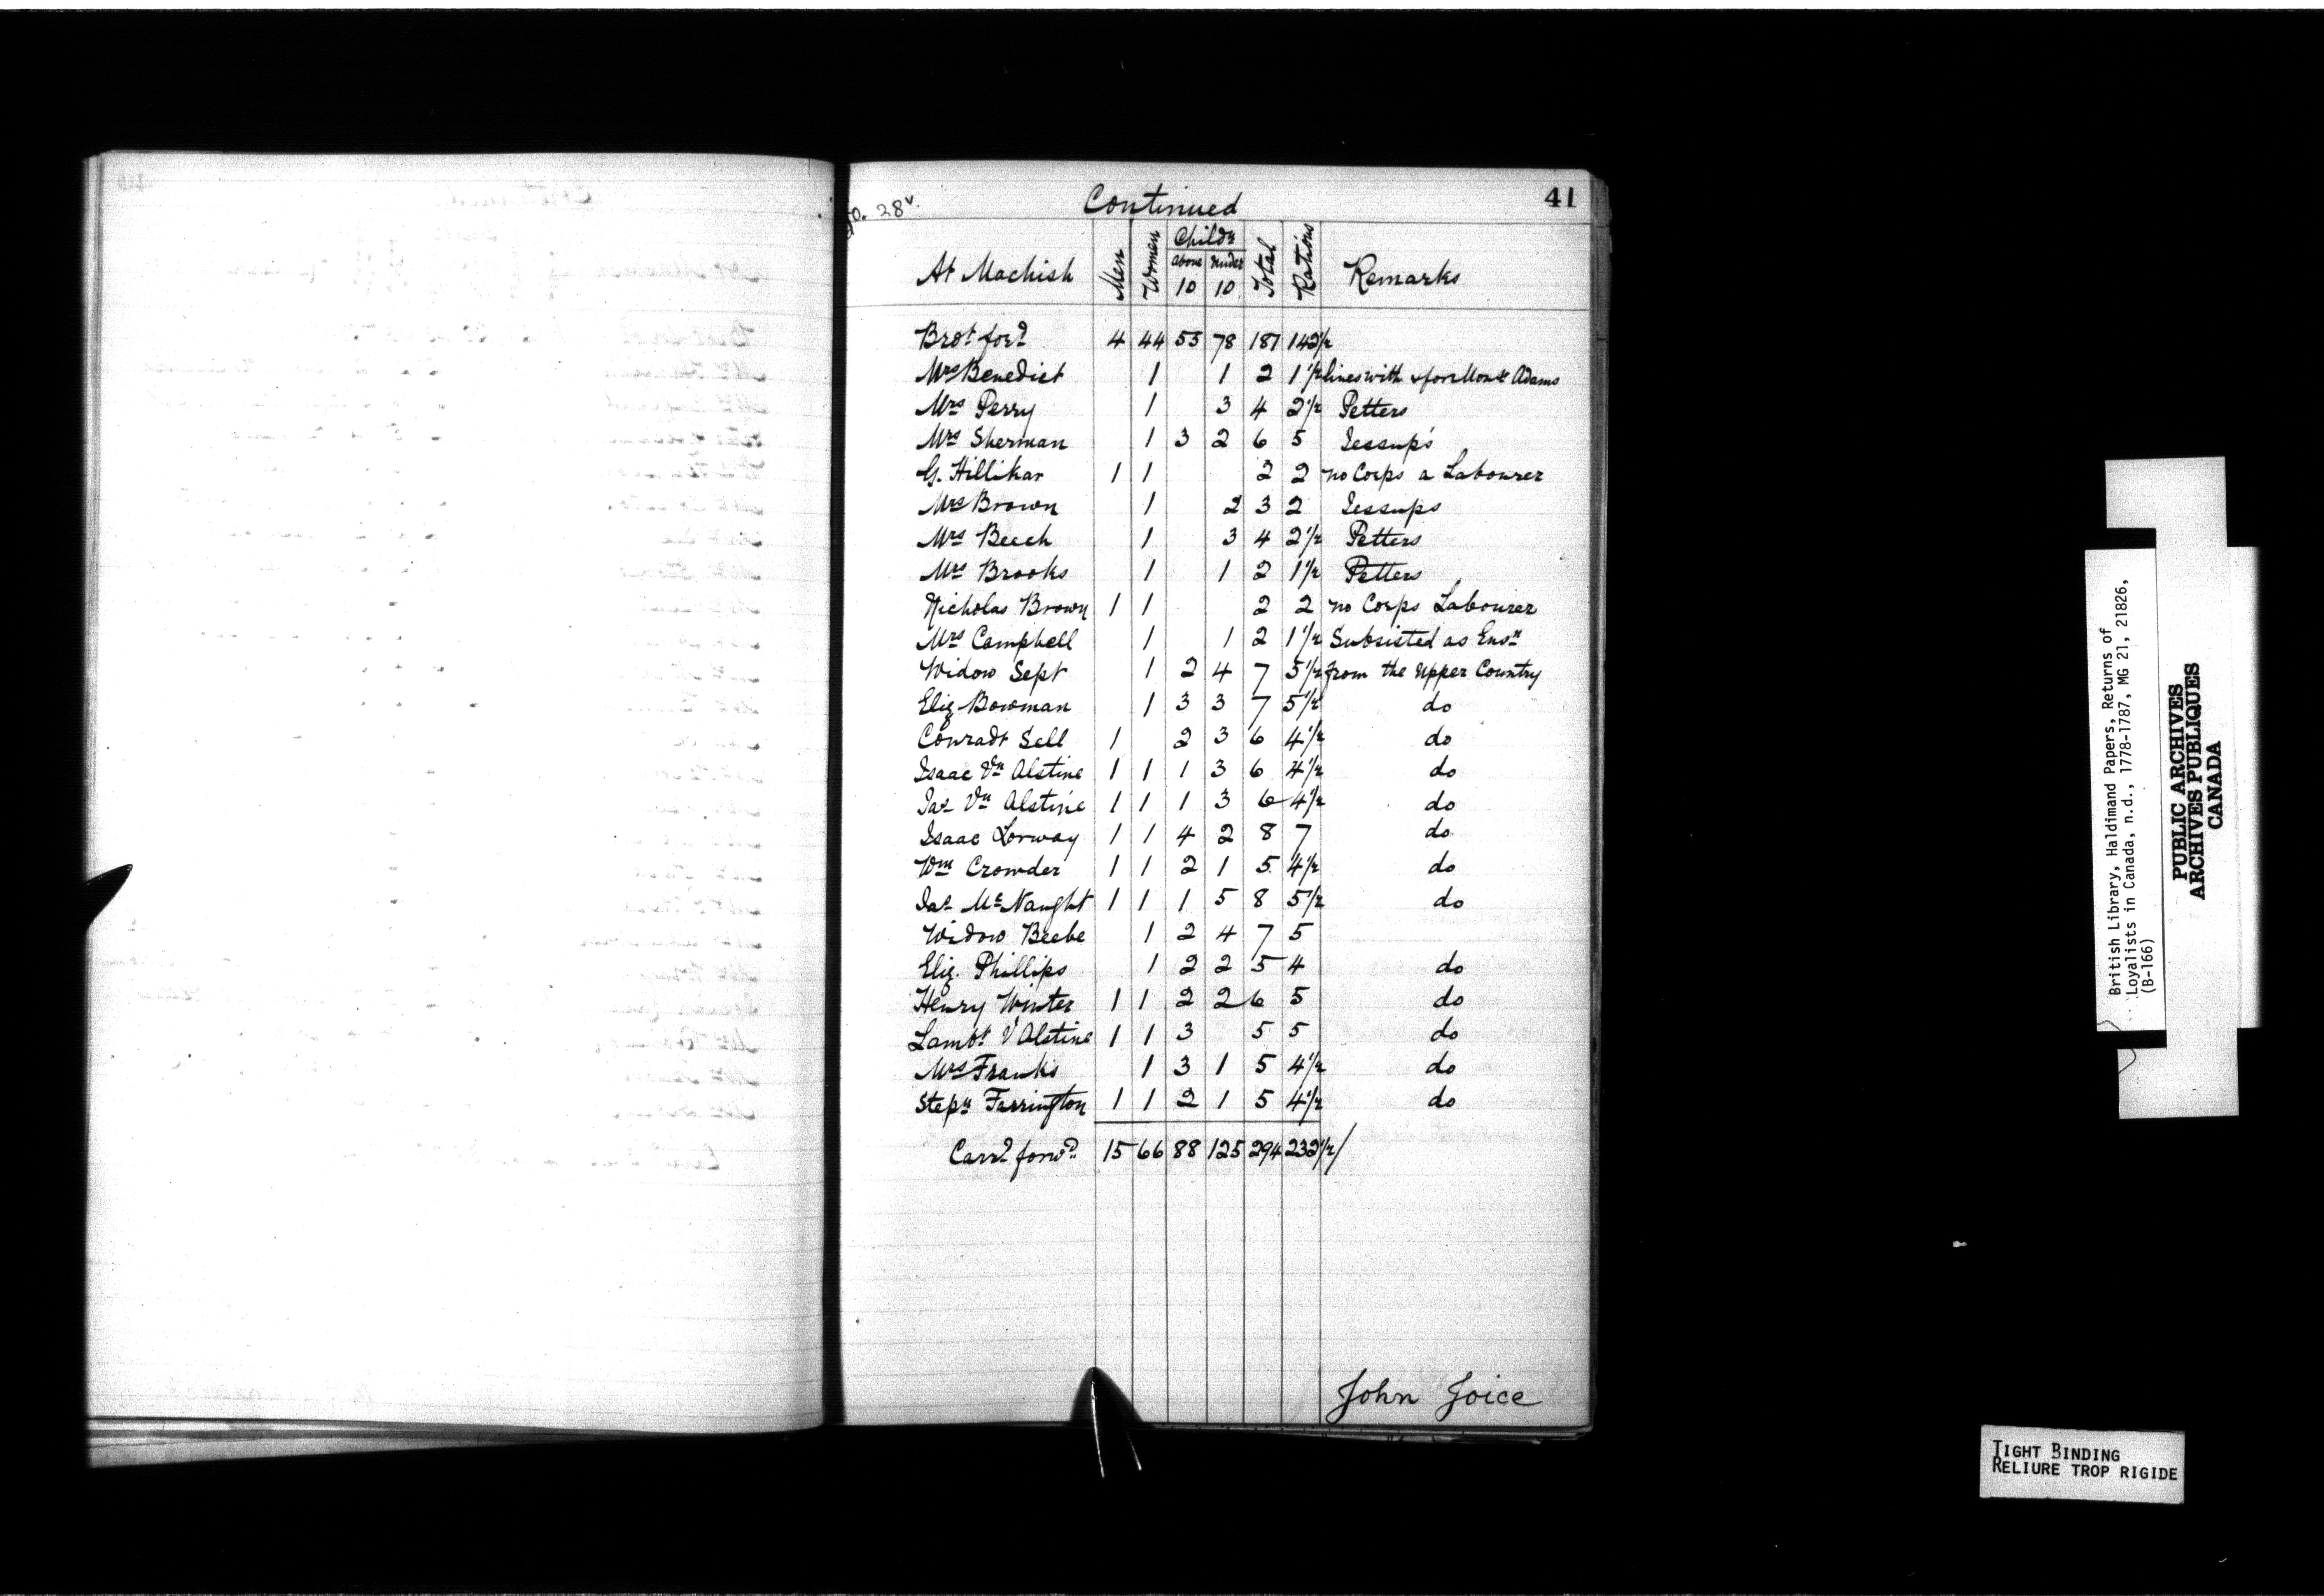 fo. 28v.
Continued
41
At Machish Men Women Childn above 10 under 10 Total Rations Remarks
Brot ford 4 44 55 78 181 142 1/2
Mrs Benedict 1 1 2 1 1/2 lives with Adams
Mrs Perry 1 3 4 2 1/2 Petters
Mrs Sherman 1 3 2 6 5 Jessup's
G. Hillikar 1 1 2 2 no Corps a Labourer
Mrs Brown 1 2 3 2 Jessups
Mrs Beech 1 3 4 2 1/2 Petters
Mrs Brooks 1 1 2 1 1/2 Petters
Nicholas Brown 1 1 2 2 no Corps Labourer
Mrs Campbell 1 1 2 1 1/2 Subsisted as Ensn
Widow Sept 1 2 4 7 5 1/2 from the Upper Country
Eliz Bowman 1 3 3 7 5 1/2 do
Conradt Sell 1 2 3 6 4 1/2 do
Isaac Vn Alstine 1 1 1 3 6 4 1/2 do
Jas Vn Alstine 1 1 1 3 6 4 1/2 do
Isaac Lorway 1 1 4 2 8 7 do
Wm Crowder 1 1 2 1 5 4 1/2 do
Jas McNaught 1 1 1 5 8 5 1/2 do
Widow Beebe 1 2 4 7 5
Eliz. Phillips 1 2 2 5 4 do
Henry Winter 1 1 2 2 6 5 do
Lambt V Alstine 1 1 3 5 5 do
Mrs Franks 1 3 1 5 4 1/2 do
Stepn Farrington 1 1 2 1 5 4 1/2 do
Carrd forwd 15 66 88 125 294 232 1/2/
John Joice
British Library, Haldimand Papers, Returns of
Loyalists in Canada, n.d., 1778-1787, MG 21, 21826,
(B-166)
PUBLIC ARCHIVES
ARCHIVES PUBLIQUES
CANADA
TIGHT BINDING
RELIURE TROP RIGIDE